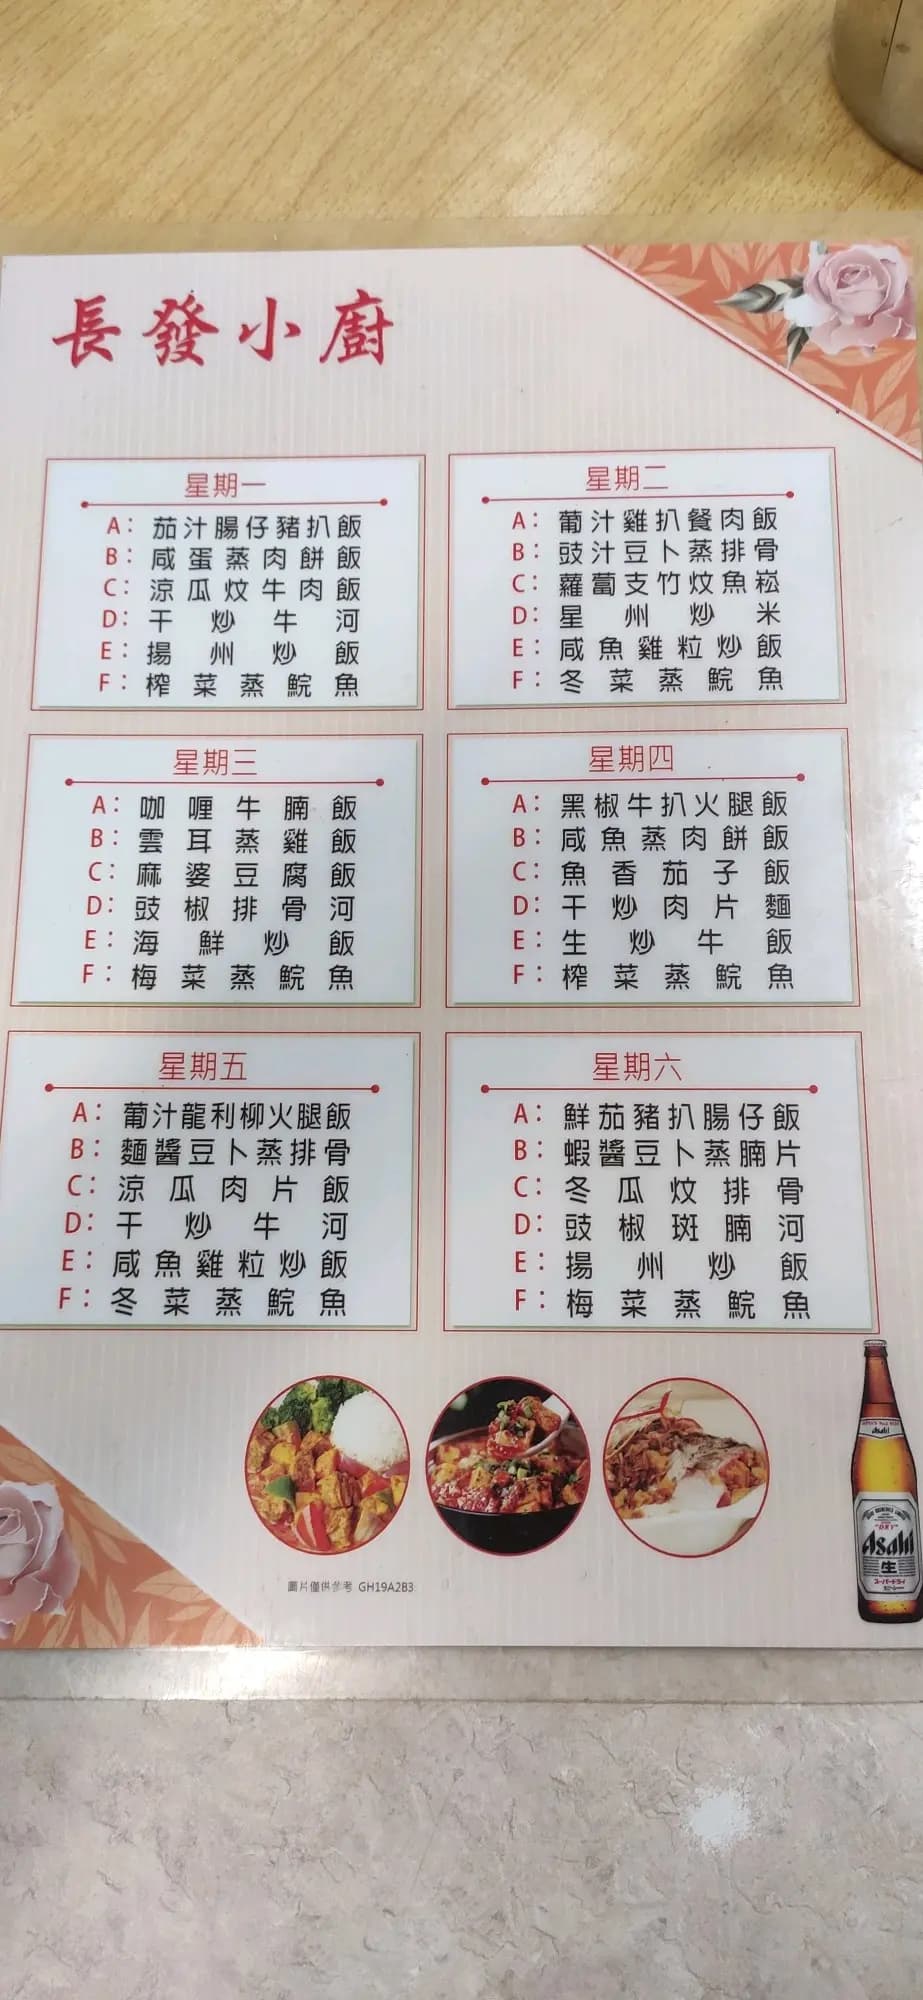 長發小廚
星期一
A: 茄汁腸仔豬扒飯
B: 咸蛋蒸肉餅飯
C: 涼瓜炆牛肉飯
D: 干炒牛河
E: 揚州炒飯
F: 榨菜蒸鯇魚
星期二
A: 葡汁雞扒餐肉飯
B: 豉汁豆卜蒸排骨
C: 蘿蔔支竹炆魚崧
D: 星州炒米
E: 咸魚雞粒炒飯
F: 冬菜蒸鯇魚
星期三
A: 咖喱牛腩飯
B: 雲耳蒸雞飯
C: 麻婆豆腐飯
D: 豉椒排骨河
E: 海鮮炒飯
F: 梅菜蒸鯇魚
星期四
A: 黑椒牛扒火腿飯
B: 咸魚蒸肉餅飯
C: 魚香茄子飯
D: 干炒肉片麵
E: 生炒牛飯
F: 榨菜蒸鯇魚
星期五
A: 葡汁龍利柳火腿飯
B: 麵醬豆卜蒸排骨
C: 涼瓜肉片飯
D: 干炒牛河
E: 咸魚雞粒炒飯
F: 冬菜蒸鯇魚
星期六
A: 鮮茄豬扒腸仔飯
B: 蝦醬豆卜蒸腩片
C: 冬瓜炆排骨
D: 豉椒斑腩河
E: 揚州炒飯
F: 梅菜蒸鯇魚
Asahi
"DRY"
Asahi
生
スーパードライ
圖片僅供參考 GH19A2B3